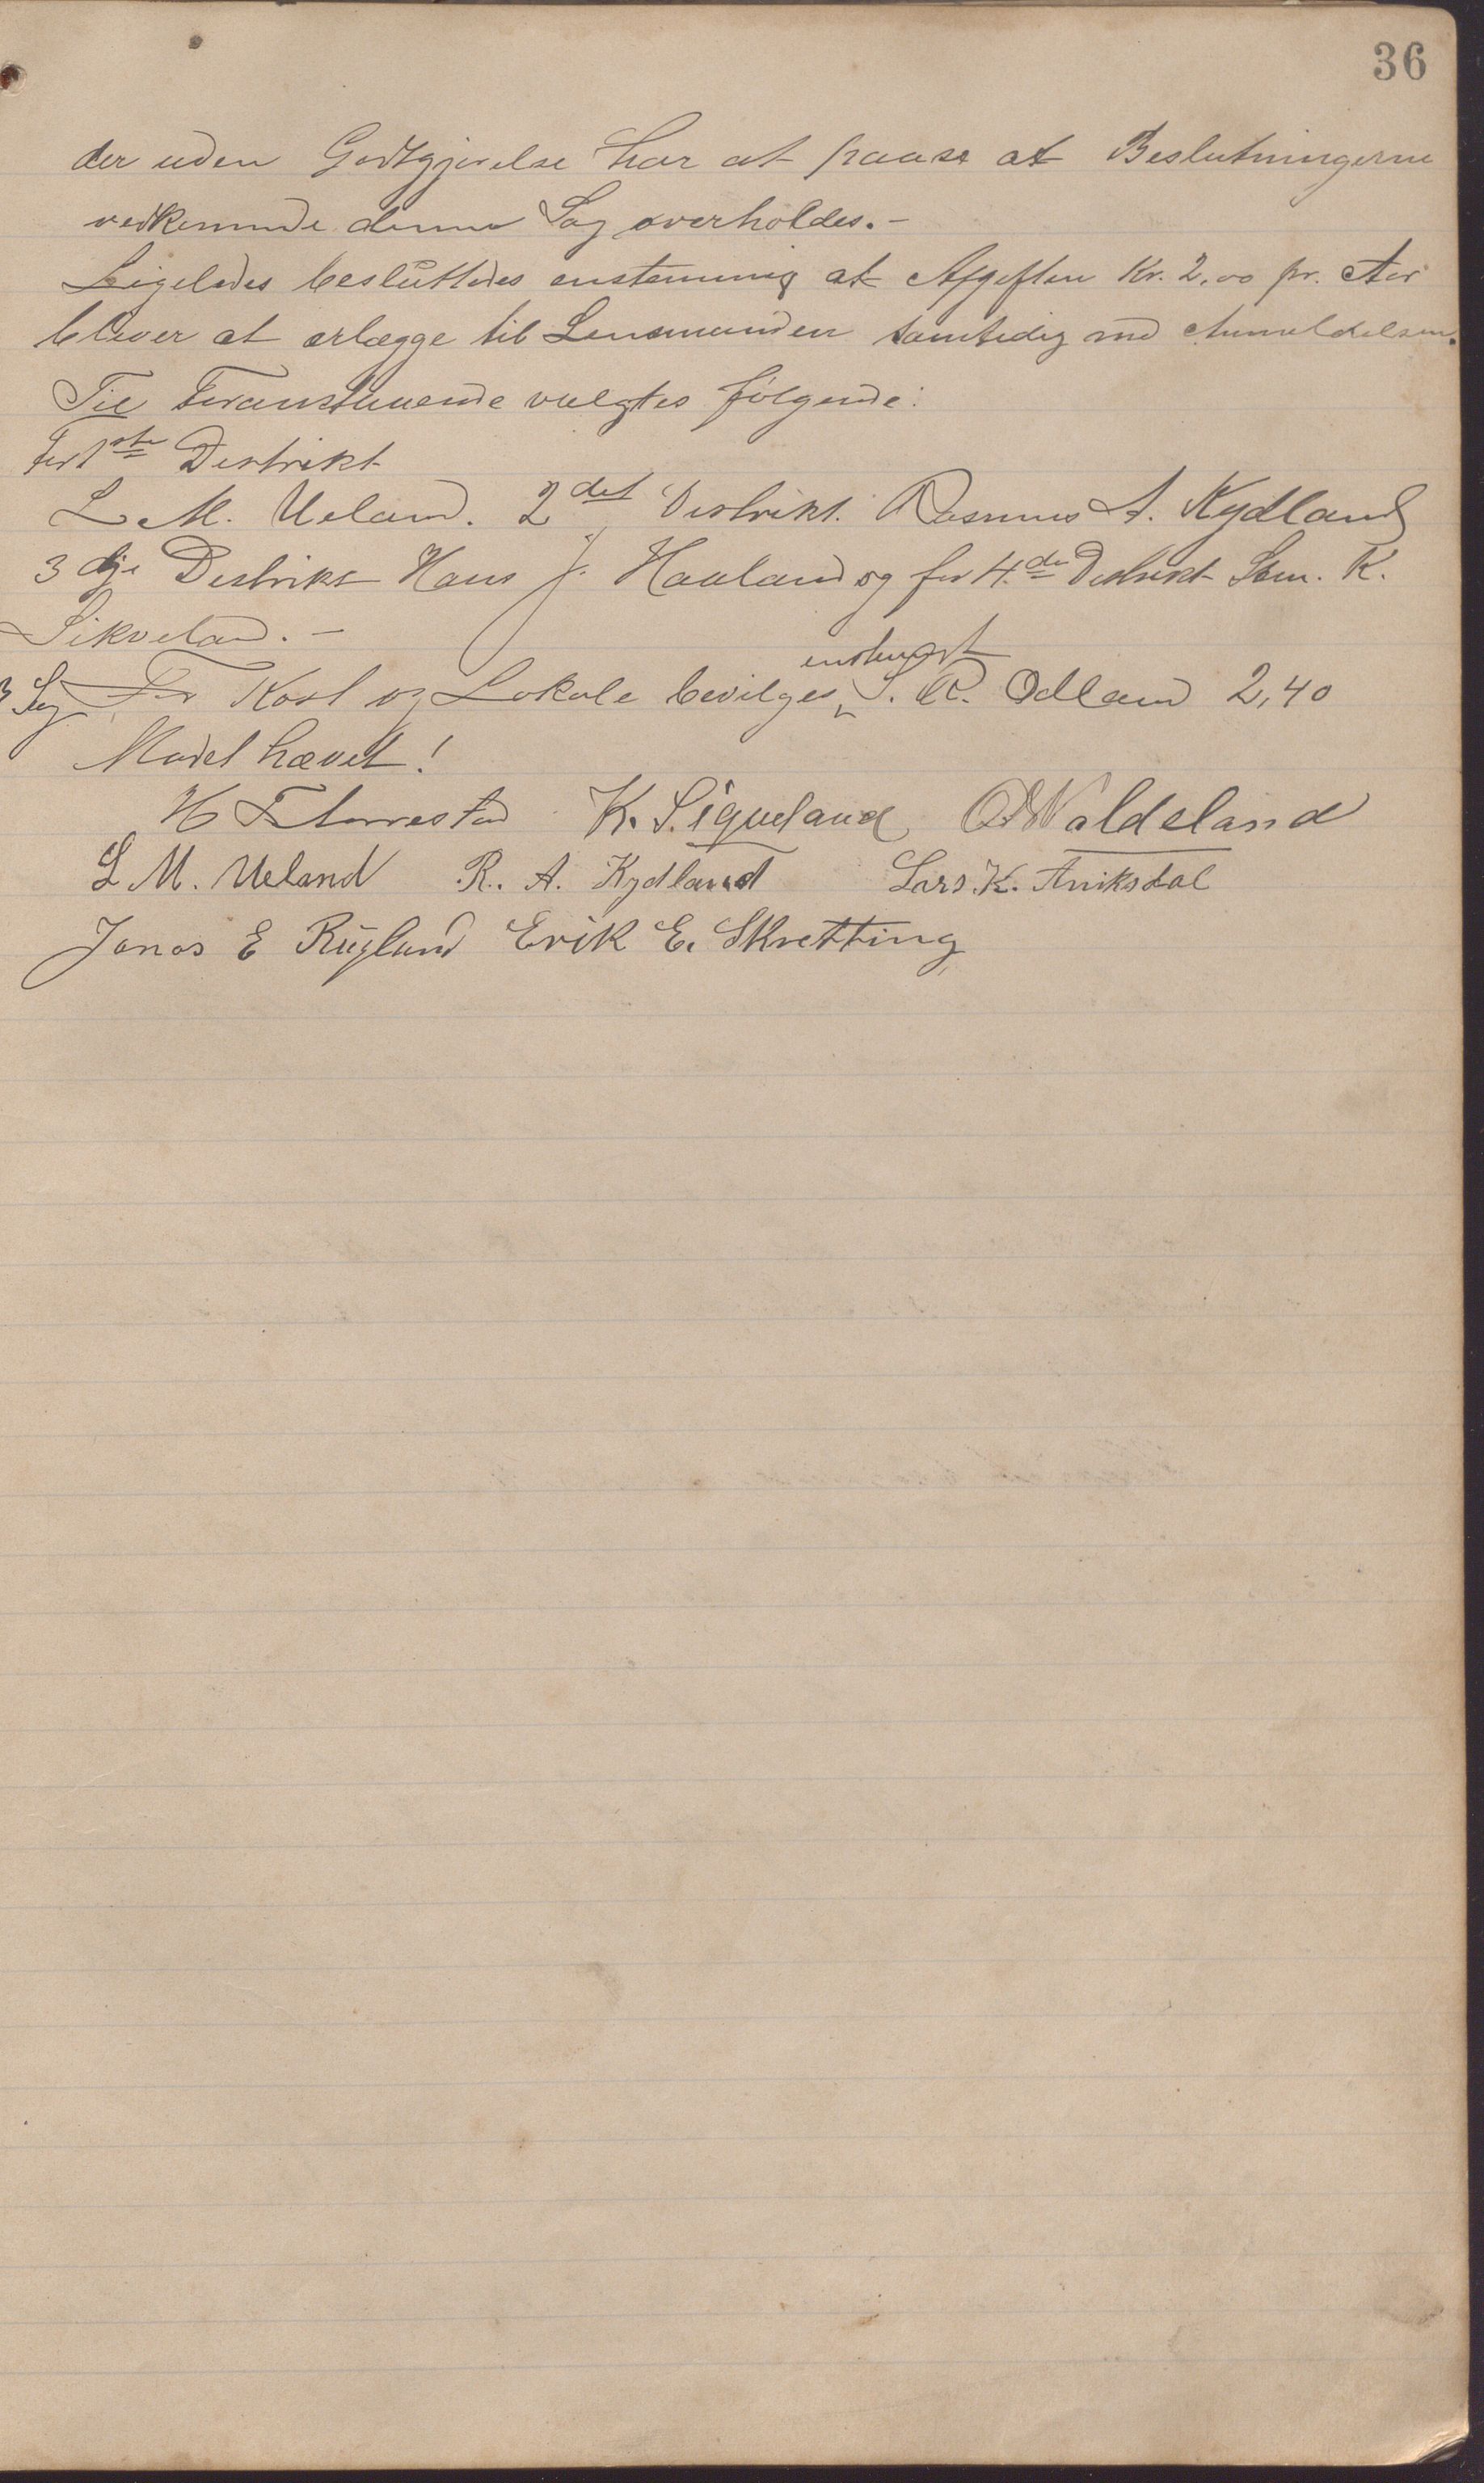 36
der uden Godtgjørelse har at paase at Beslutningerne
vedkommende denne Sag overholdes. -
Ligeledes besluttedes enstemmig at Afgiften Kr. 2,00 pr. Aar
bliver at erlægge til Lensmanden samtidig med Anmeldelsen.
Til Foranstaaende valgtes følgende:
For 1ste Destrikt
L M. Ueland. 2det Destrikt. Rasmus A. Kydland
3dje Destrikt Hans J. Haaland og for 4.de Destrikt Sem. K.
Sikveland. -
enstemt
3 Sag For Kost og Lokale bevilges S. R. Odland 2,40
Mødet hævet!
K. Sigveland O Waldeland
L M. Ueland R. A. Kydland Lars. K. Aniksdal
Jonas E Rugland Erik E. Skretting